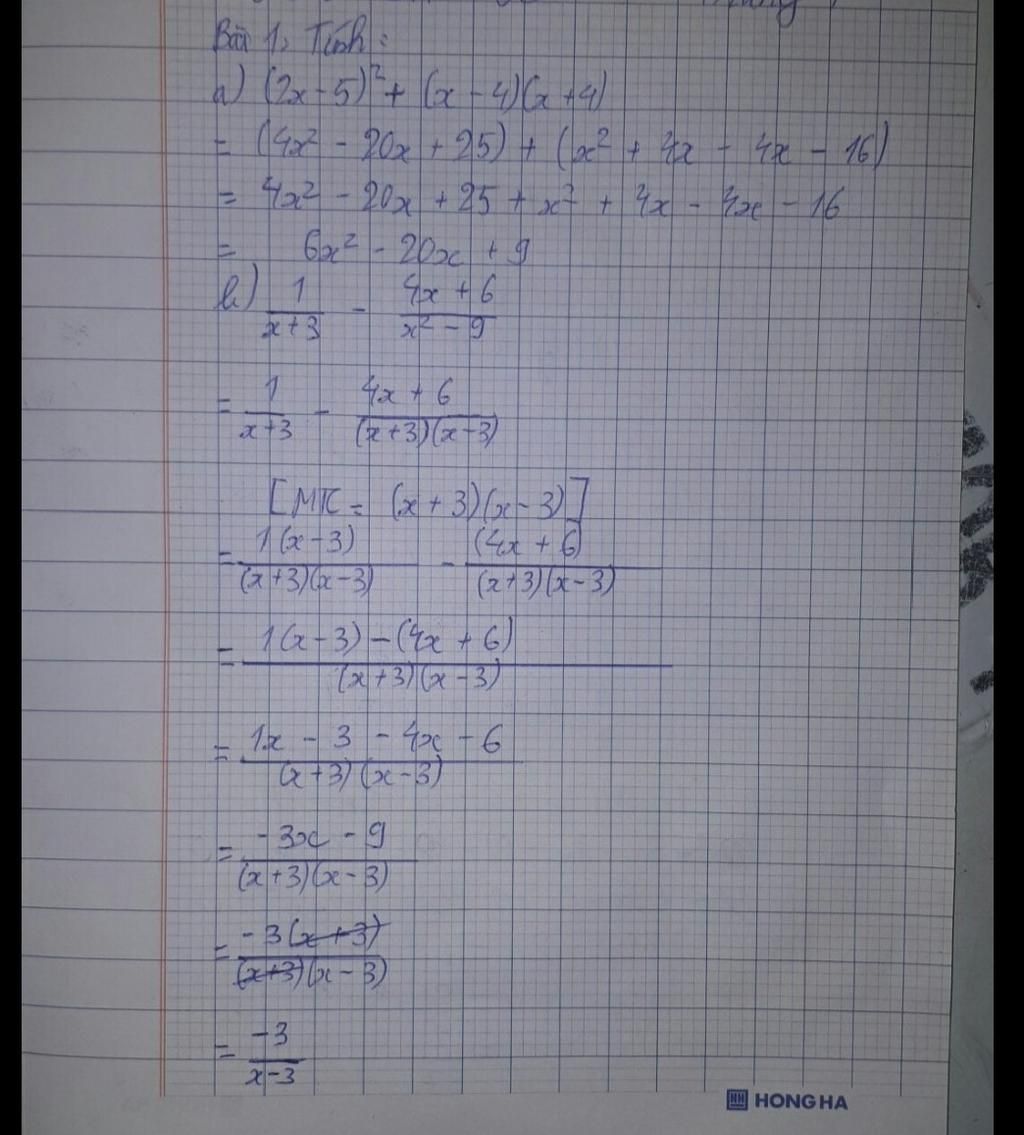 Bài 1, Tính:
a) (2x - 5)² + (x - 4)(x + 4)
= (4x² - 20x + 25) + (x² + 4x - 4x - 16)
= 4x² - 20x + 25 + x² + 4x - 4x - 16
= 6x² - 20x + 9
b) 1/(x+3) - (4x + 6)/(x² - 9)
= 1/(x+3) - (4x + 6)/((x+3)(x-3))
[MTC = (x + 3)(x - 3)]
= 1(x - 3)/((x+3)(x-3)) - (4x + 6)/((x+3)(x-3))
= (1(x - 3) - (4x + 6))/((x+3)(x-3))
= (1x - 3 - 4x - 6)/((x+3)(x-3))
= (-3x - 9)/((x+3)(x-3))
= -3(x+3)/((x+3)(x-3))
= -3/(x-3)
HONG HA